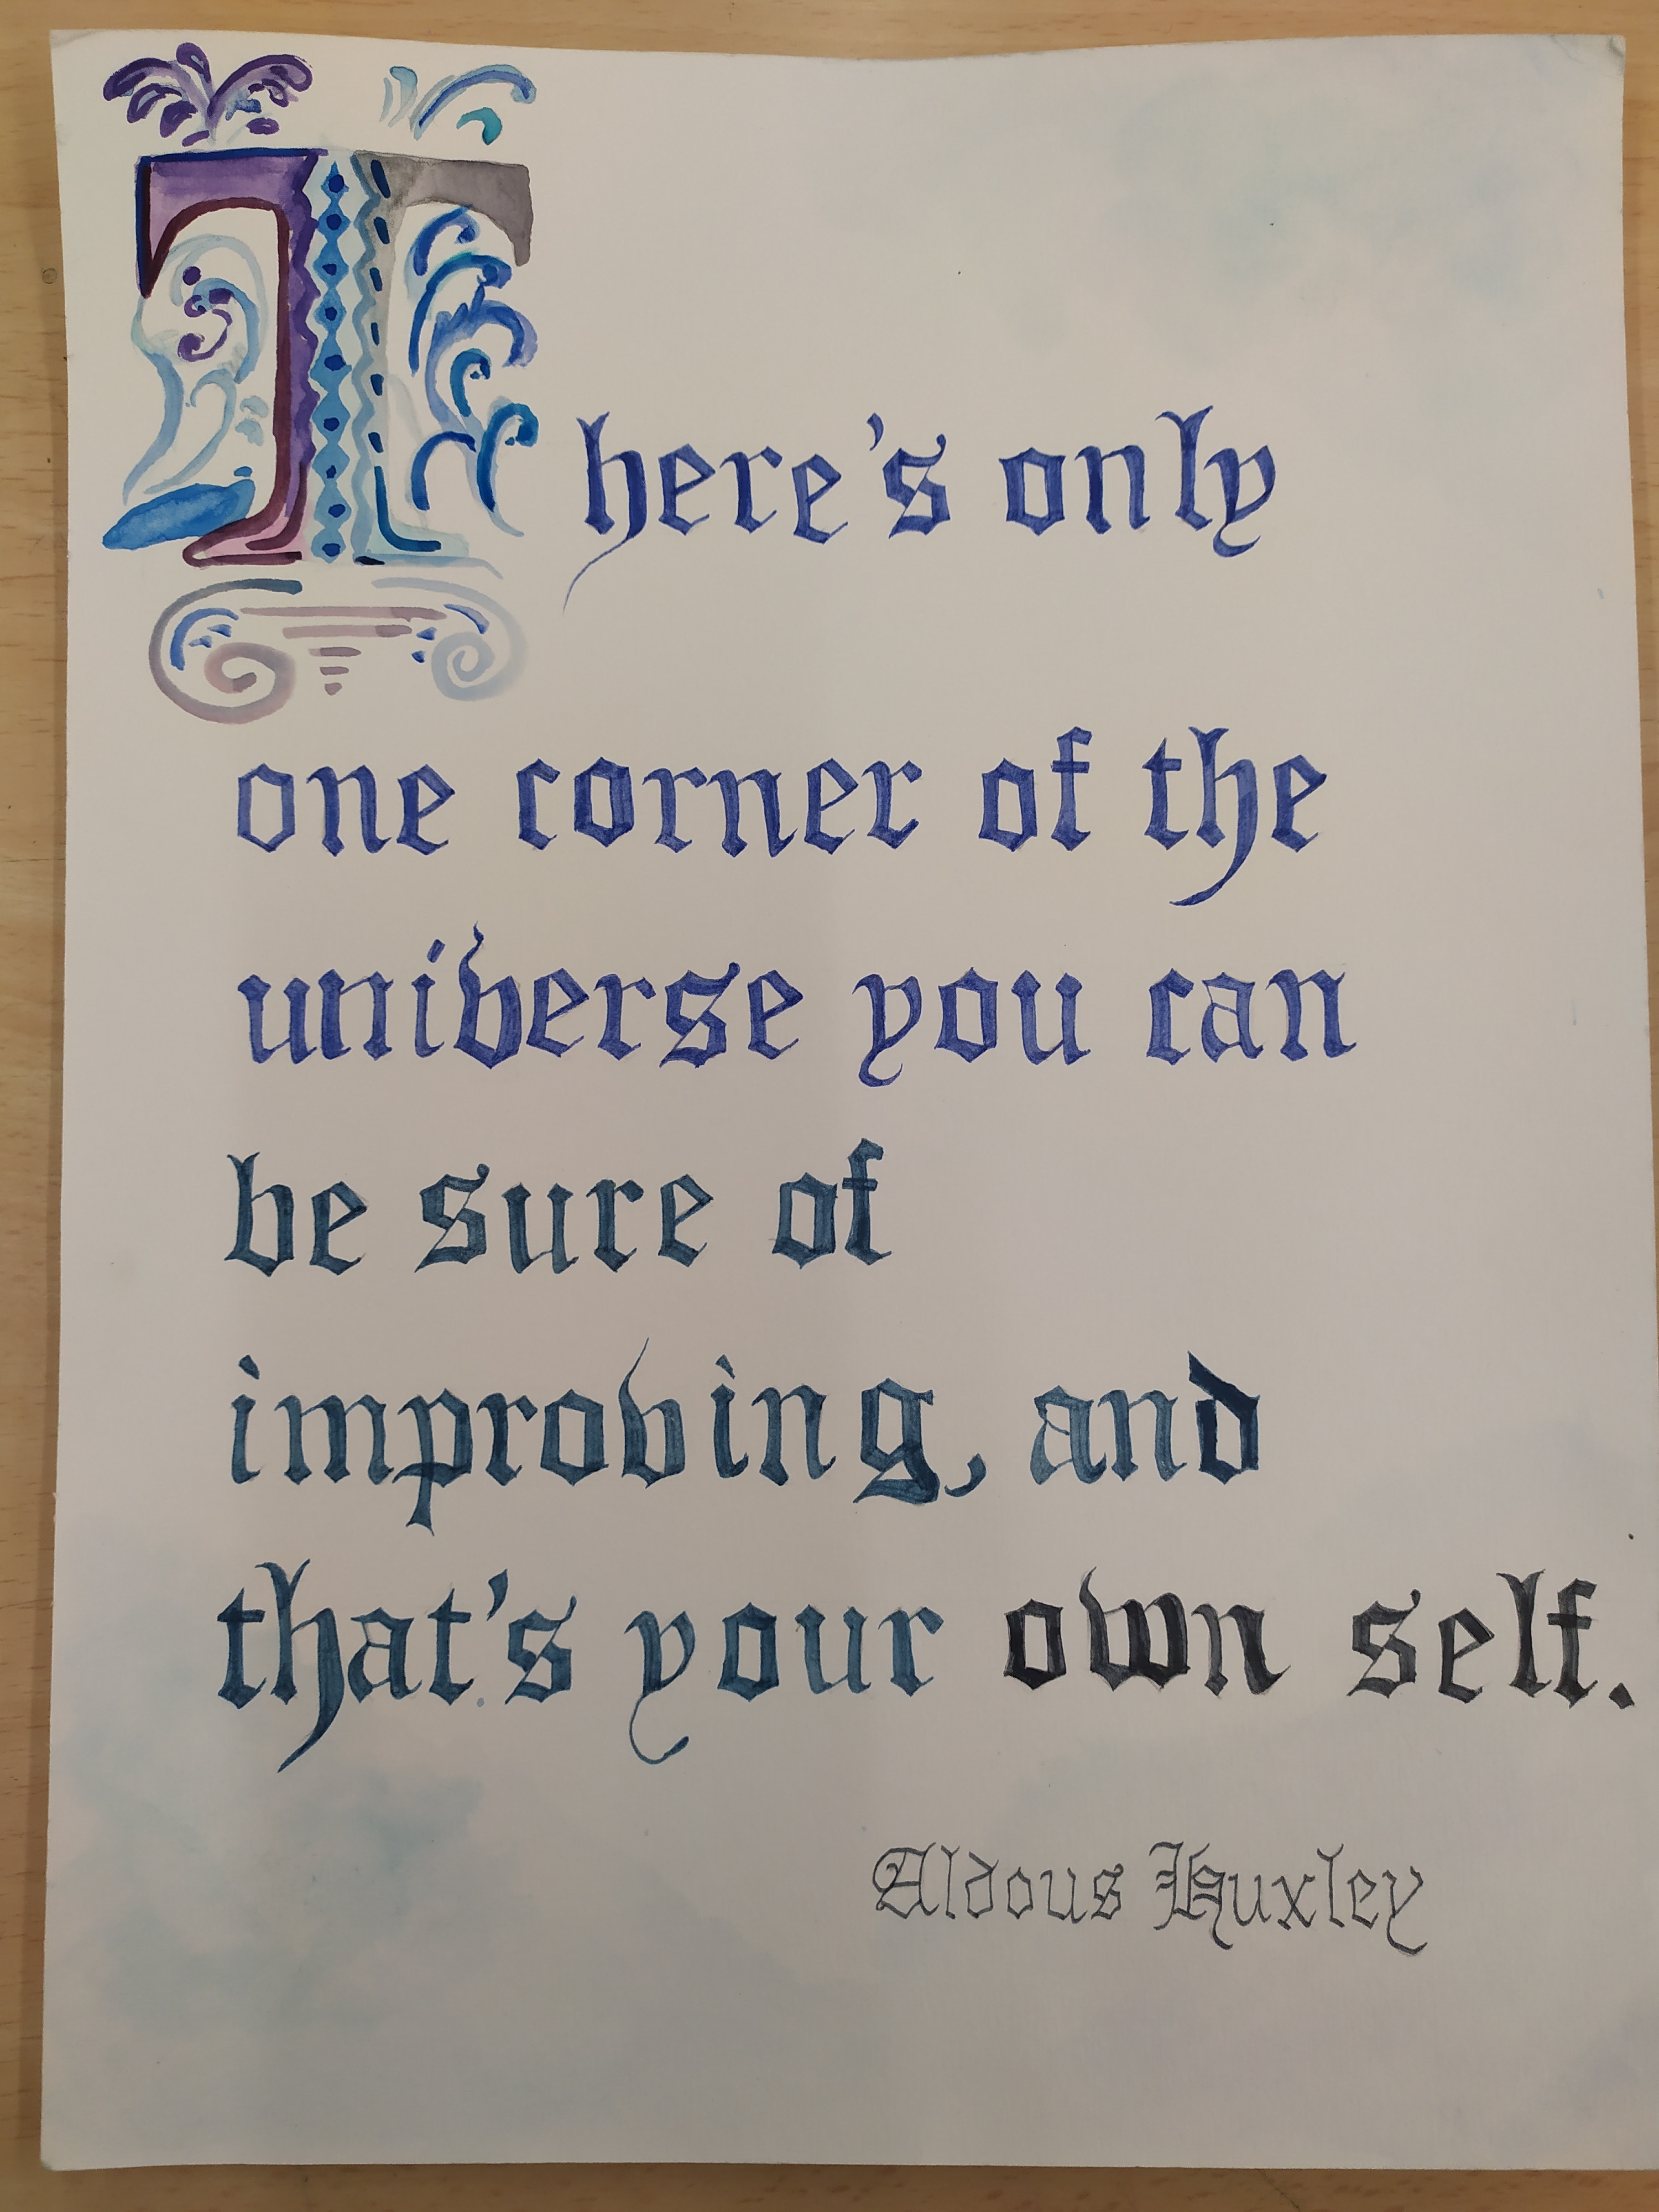 There's only
one corner of the
universe you can
be sure of
improving, and
that's your own self.
Aldous Huxley